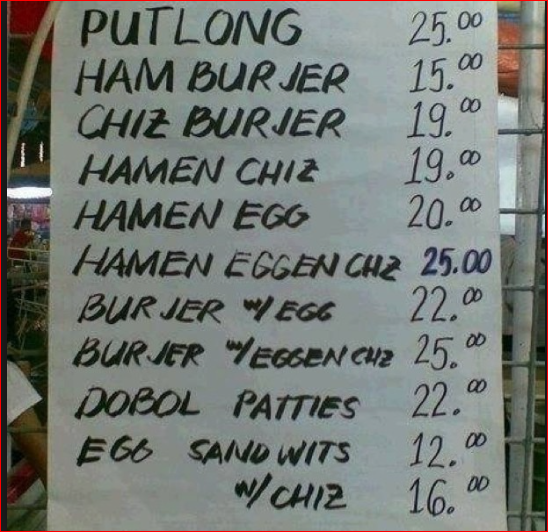 PUTLONG 25.00
HAM BURJER 15.00
CHIZ BURJER 19.00
HAMEN CHIZ 19.00
HAMEN EGG 20.00
HAMEN EGGEN CHZ 25.00
BURJER W/ EGG 22.00
BURJER W/EGGEN CHZ 25.00
DOBOL PATTIES 22.00
EGG SANDWITS 12.00
W/ CHIZ 16.00